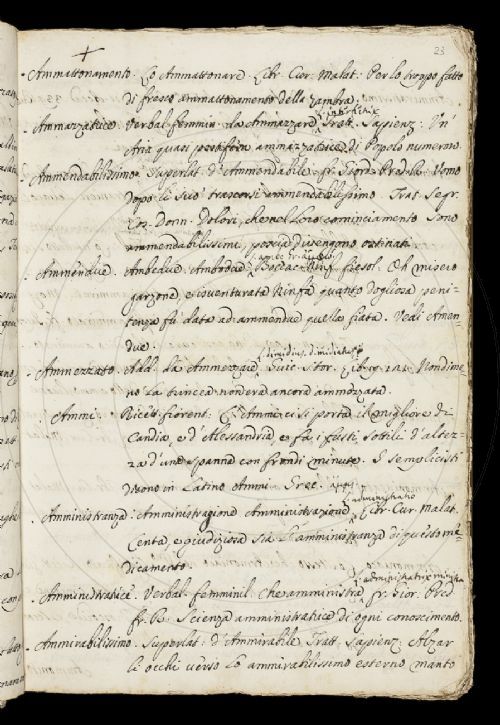 23
Ammattonamento. Lo Ammattonare Libr. Cur. Malat: Per lo troppo fatto
di fresco ammattonamento della zambra.
interfectrix
Ammazzatrice Verbal. femmin. da Ammazzare Tratt. Sapienz: Un'
Aria quasi ammazzatrice di Popolo numeroso.
Ammendabilissimo Superlat. d'Ammendabile. fr. Giord. Pred. R. Uomo
dopo li suoi trascorsi ammendabilissimo. Trat. Segr.
Cos. Donn. Dolori, che nel Loro cominciamento sono
ammendabilissimi, poscia divengono ostinati.
Ammendue. Ambedue Ambodue Boccac. Ninf. Fiesol. Oh misero
garzone, e isventurata Ninfa quanto dogliosa peni-
tenza fù data ad ammendue quella fiata. Vedi Amen-
due.
dimidius, dimidiatus
Ammezzato. Add. da Ammezzare Guic. Stor. Libr. 19. 121. Nondime-
no la ancora ammezzata.
Ammi. Ricett. Fiorent. L'Ammi ci si porta il migliore di
Candia, e d'Alessandria, e fa i fusti sottili d'altez-
za d'una spanna con frondi minute. I Semplicisti
dicono in Latino Ammi. Grec. ἄμμι
administratio
Amministranza. Amministragione Amministrazione Libr. Cur. Malat.
Centa, e giudiziosa sia l'amministranza di questo me-
dicamento.
administratrix ministra
Amministratrice. Verbal. femminil. Che amministra fr. Gior. Pred.
fr. R. Scienza amministratrice di ogni conoscimento.
Ammirabilissimo. Superlat. d'Ammirabile. Tratt. Sapienz. Alzar
li occhi verso lo ammirabilissimo esterno manto